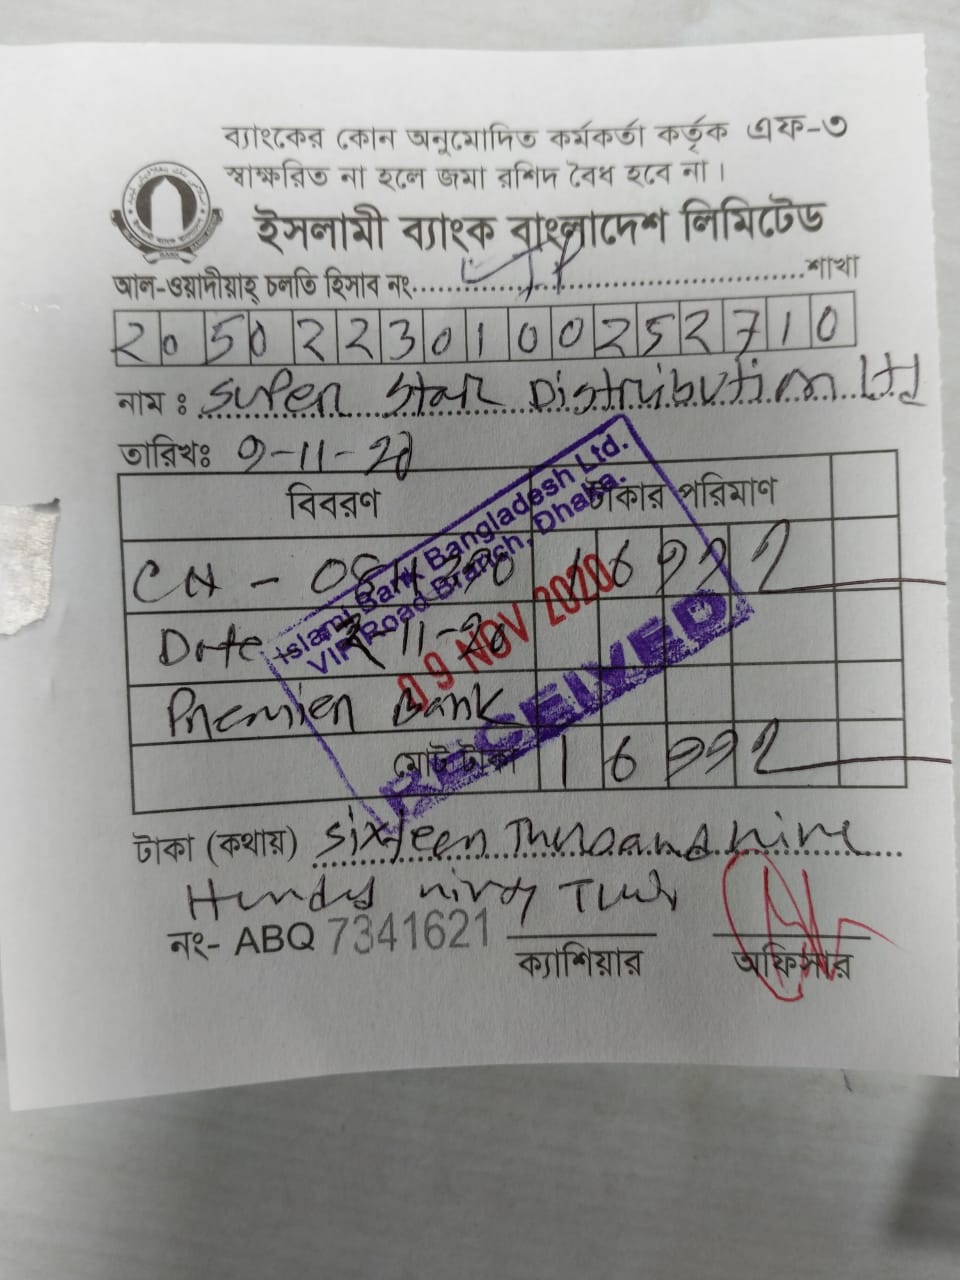 ব্যাংকের কোন অনুমোদিত কর্মকর্তা কর্তৃক এফ-৩
স্বাক্ষরিত না হলে জমা রশিদ বৈধ হবে না।
ইসলামী ব্যাংক বাংলাদেশ লিমিটেড
আল-ওয়াদীয়াহ্ চলতি হিসাব নং..........শাখা
20502230100252710
নাম : Super Star Distribution Ltd
তারিখঃ 9-11-20
বিবরণ টাকার পরিমাণ
CH - 16992
Date -11-20
Premier Bank
মোট টাকা 16992
Islami Bank Bangladesh Ltd.
VIP Road Branch, Dhaka.
09 NOV 2020
RECEIVED
টাকা (কথায়) Sixteen Thousand nine
নং- ABQ 7341621
ক্যাশিয়ার অফিসার